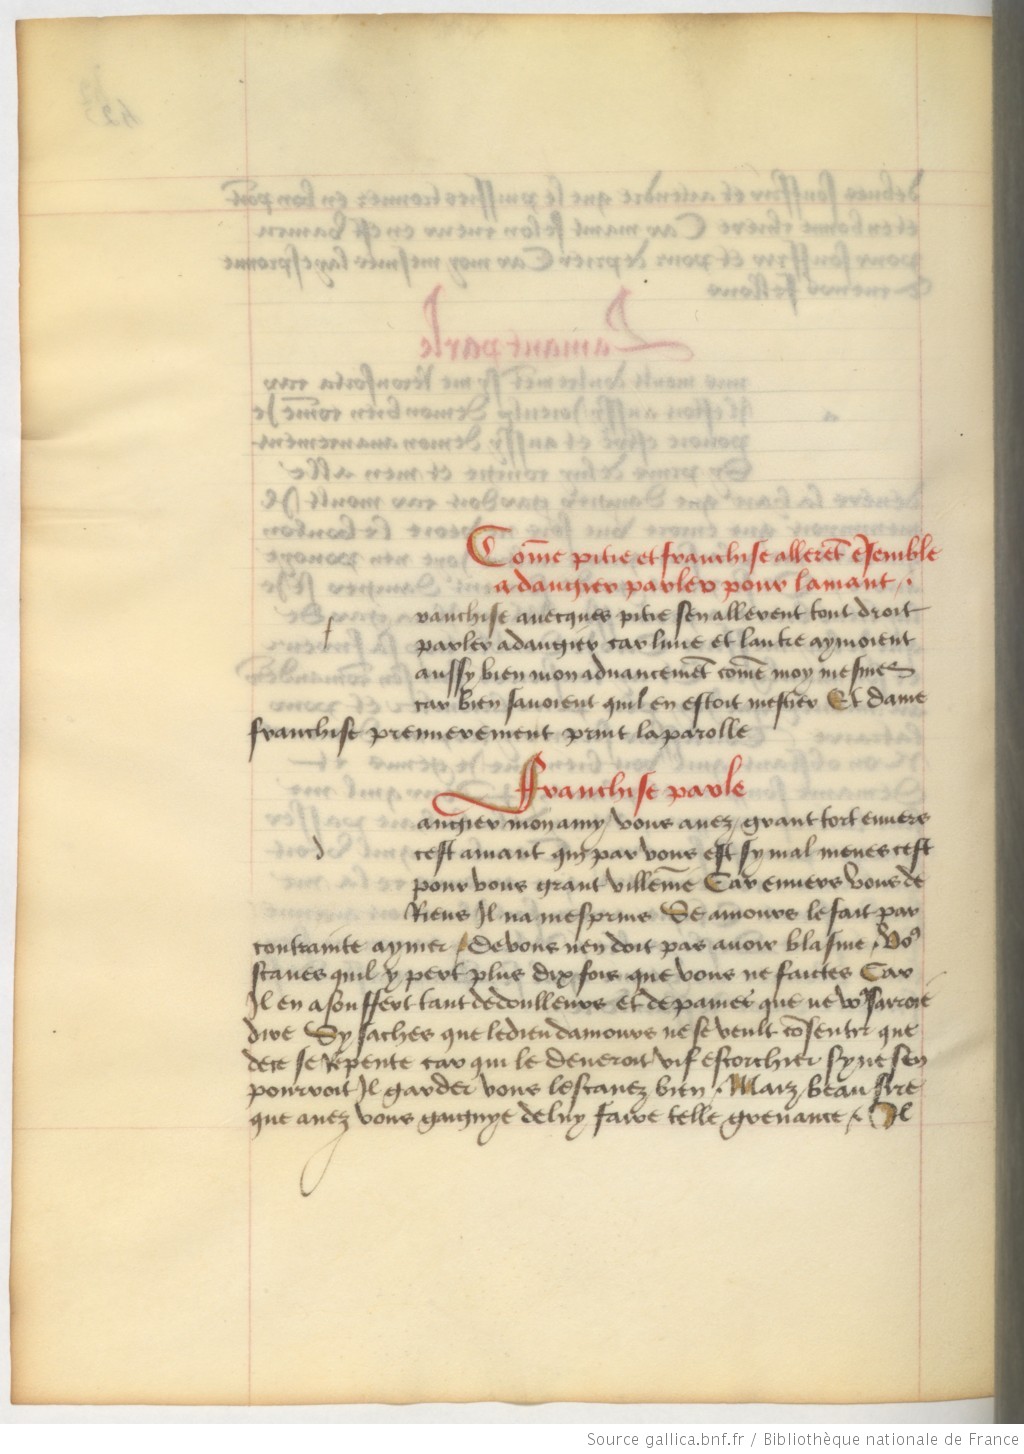 Com̃e pitie et franchise allerẽt ẽsemble
a dangier parler pour lamant .
f
ranchise auecques pitie sen allerent tout droit
parler a dangier car lune et lautre aymoient
aussy bien mon aduancemẽt com̃e moy mesmes
car bien sauoient quil en estoit mestier Et dame
franchise premierement print la parolle
Franchise parle
d
angier mon amy vous auez grant tort enuers
cest amant qui par vous est sy mal menes cest
pour vous grant villenie Car enuers vous de
Riens Il na mesprins Se amours le fait par
contrainte aymer / De vous nen doit pas auoir blasme . vo9
scaues quil y pert plus dix fois que vous ne faictes Car
Il en a souffert tant de doulleurs et de paines que ne vo9 sarroie
dire Sy saches que le dieu damours ne se veult cõsentir que
de ce se Repente car qui le deueroit vif escorchier sy ne sen
pourroit Il garder vous le scauez bien . Maiz beau sire
que auez vous gaignye de luy faire telle greuance . Il
Source gallica.bnf.fr / Bibliothèque nationale de France